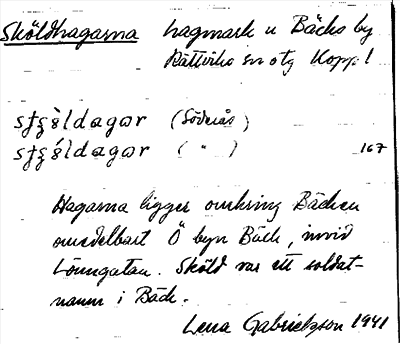 Sköldhagarna hagmark u Bäcks by
Rättviks sn otg Kopp l
(Söderås)
( " ) 167
Hagarna ligger omkring Bäcken
omedelbart Ö byn Bäck, invid
Lönngatan. Sköld var ett soldat-
namn i Bäck.
Lena Gabrielsson 1941